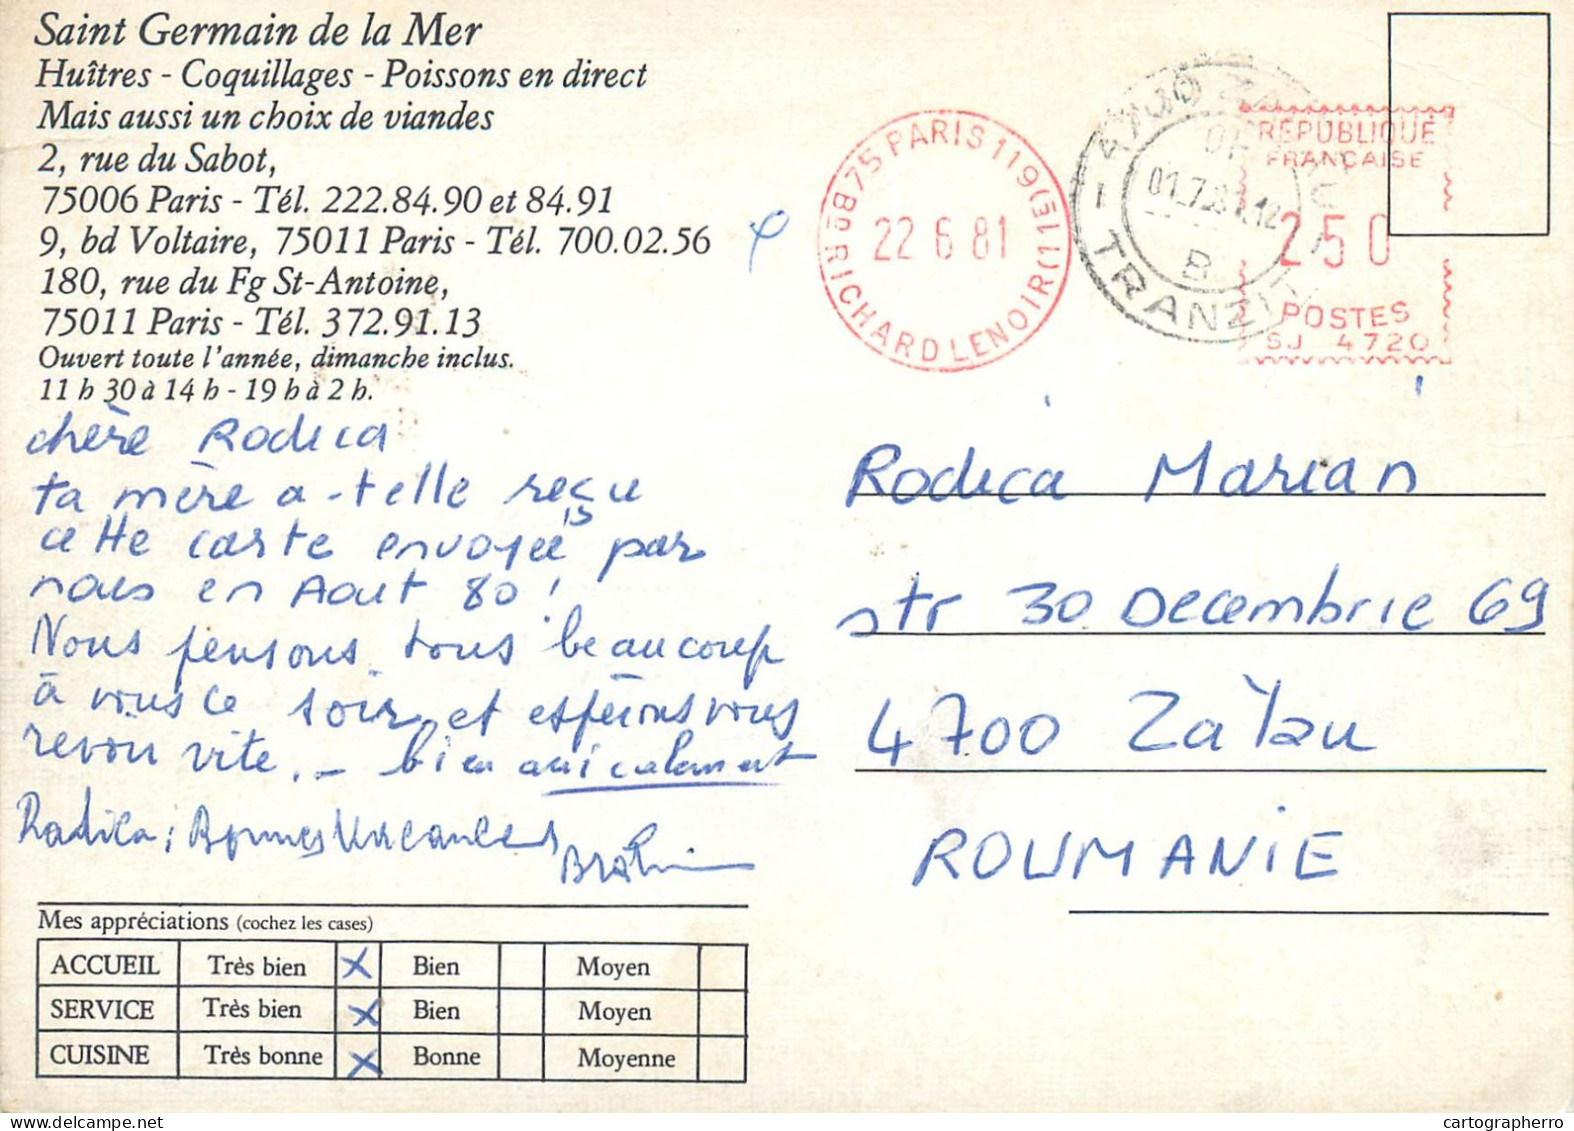 Saint Germain de la Mer
Huîtres - Coquillages - Poissons en direct
Mais aussi un choix de viandes
2, rue du Sabot,
75006 Paris - Tél. 222.84.90 et 84.91
9, bd Voltaire, 75011 Paris - Tél. 700.02.56
180, rue du Fg St-Antoine,
75011 Paris - Tél. 372.91.13
Ouvert toute l'année, dimanche inclus.
11 h 30 à 14 h - 19 h à 2 h.
chère Rodica
ta mère a-telle reçu
cette carte envoyée par
nous en Aout 80!
Nous pensons tous beaucoup
à vous ce soir et espérons vous
revoir vite. - bien amicalement
Rodica; Bonnes Vacances
75 PARIS 119 (311E)
Bd RICHARD LENOIR
22 6 81
TRANZIT
B
RÉPUBLIQUE
FRANÇAISE
2 50
POSTES
SJ 4720
Rodica Marian
str 30 Decembrie 69
4700 Zalau
ROUMANIE
Mes appréciations (cochez les cases)
ACCUEIL Très bien X Bien Moyen
SERVICE Très bien X Bien Moyen
CUISINE Très bonne X Bonne Moyenne
cartographerro